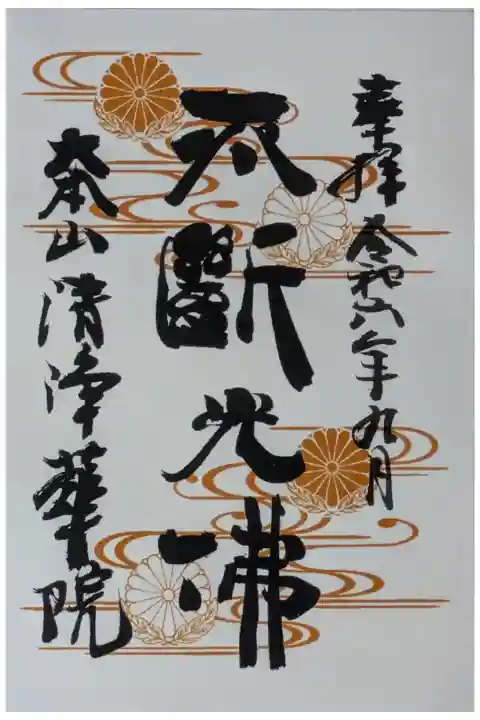 奉拝 令和六年九月
不斷光佛
大本山 清浄華院